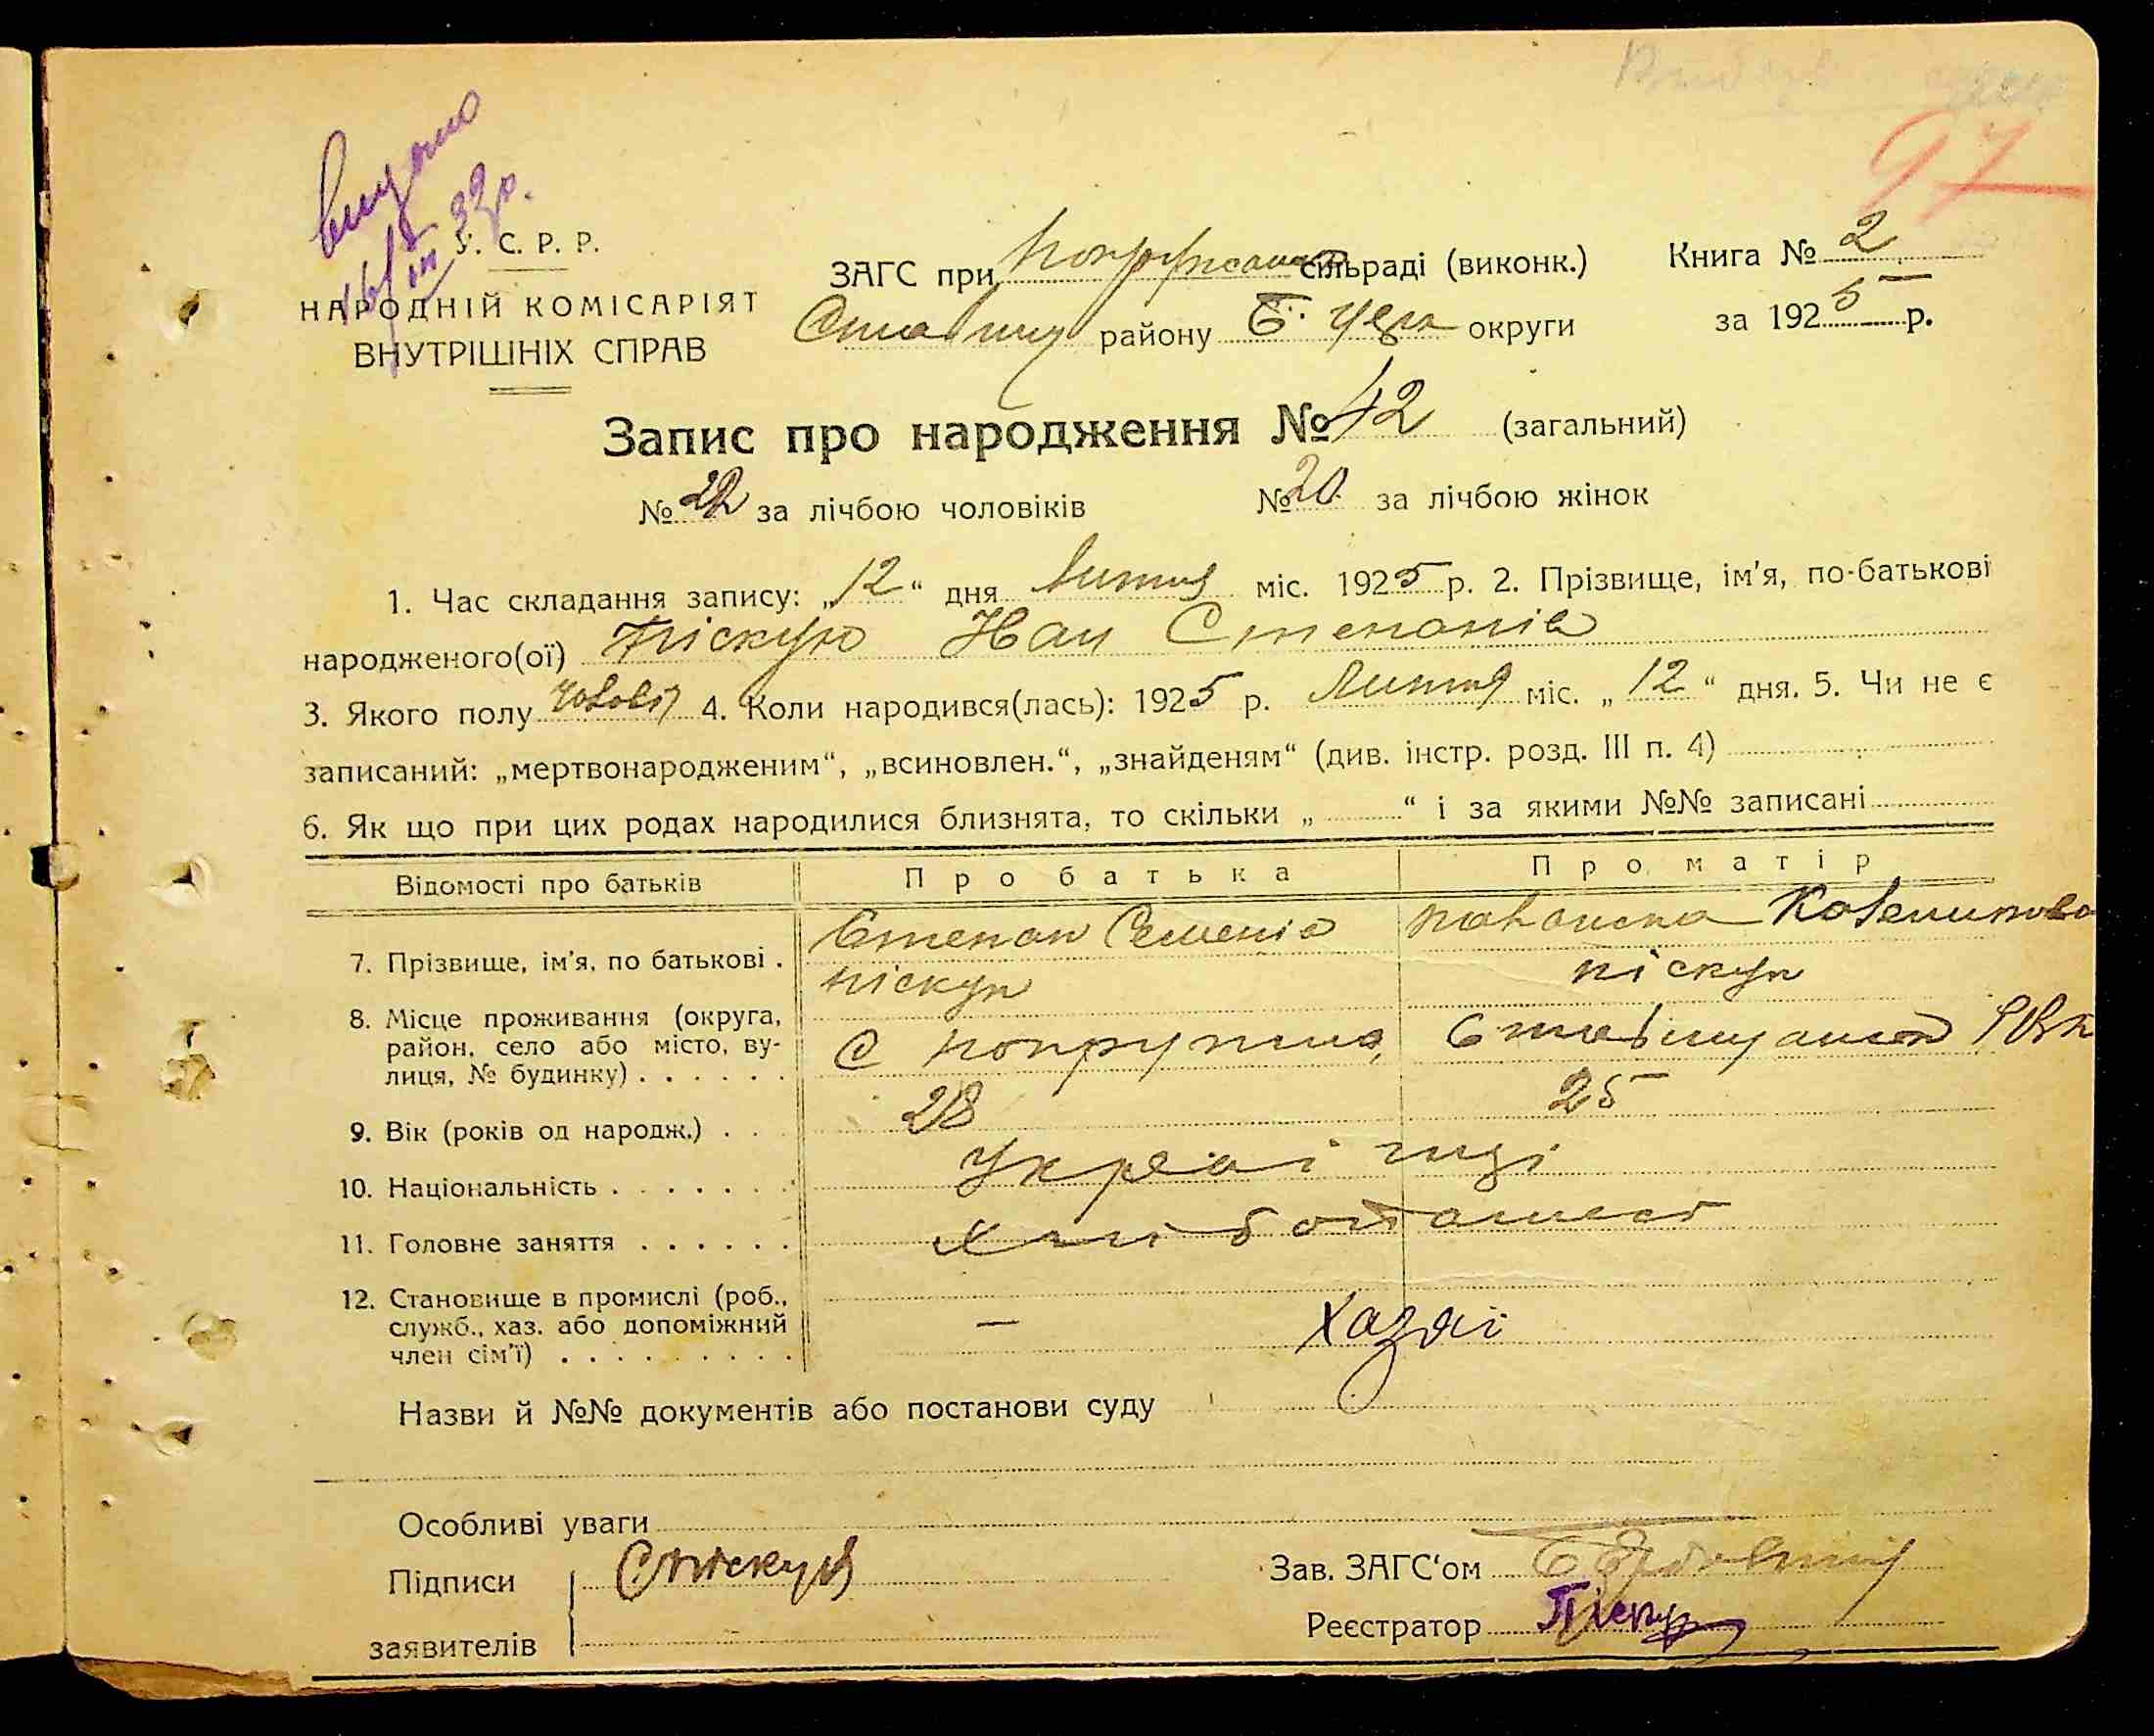 видано
16/III 33р.
97
У. С. Р. Р.
НАРОДНІЙ КОМІСАРІЯТ
ВНУТРІШНІХ СПРАВ
ЗАГС при сільраді (виконк.) Книга № 2
району Б. Церк округи за 1925 р.
Запис про народження № 42 (загальний)
№ 22 за лічбою чоловіків № 20 за лічбою жінок
1. Час складання запису: „12“ дня Лютня міс. 1925 р. 2. Прізвище, ім'я, по-батькові
народженого(ої) Піскун Іван Степанів
3. Якого полу чолові 4. Коли народився(лась): 1925 р. Лютня міс. „12“ дня. 5. Чи не є
записаний: „мертвонародженим“, „всиновлен.“, „знайденям“ (див. інстр. розд. III п. 4)
6. Як що при цих родах народилися близнята, то скільки „ “ і за якими №№ записані
Відомості про батьків Про батька Про матір
7. Прізвище, ім'я, по батькові . Степан Семенів
піскун піскун
8. Місце проживання (округа,
район, село або місто, ву-
лиця, № будинку) . . . . . . с
9. Вік (років од народж.) . . 28 25
10. Національність . . . . . . . Украінці
11. Головне заняття . . . . . . хлібопашест
12. Становище в промислі (роб.,
служб., хаз. або допоміжний
член сім'ї) . . . . . . . . . — Хазяї
Назви й №№ документів або постанови суду
Особливі уваги
Підписи С Піскун Зав. ЗАГС'ом
заявителів Реєстратор